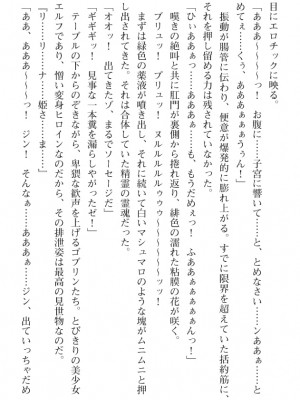 目にエロチックに映る。
「あああ～～～っ！　お腹に……子宮に響いて……と、とめなさい……ンああぁ……と
めてぇ……くう、あああぁぁぁううん！」
振動が腸管に伝わり、便意が爆発的に膨れ上がる。すでに限界を超えていた括約筋に、
それを押し留める力は残されていなかった。
「ひぃああぁっ……あああぁ……も、もうだめぇっ！　ふああぁぁぁぁぁんっ！」
嘆きの絶叫と共に肛門が裏側から捲れ返り、緋色の濡れた粘膜の花が咲く。
ブリュッ！　ブリュッ！　ヌルルルルゥゥ～～～～～ッ！
まずは緑色の薬液が噴き出し、それに続いて白いマシュマロのような塊がムニムニと押
し出されてきた。それは合体していた精霊の霊魂だった。
「オオッ！　出てきたゾ、まるでソーセージだ」
「ギギギッ！　見事な一本糞を漏らしやがったゼ！」
テーブルの下からのぞきながら、卑猥な歓声を上げるゴブリンたち。とびきりの美少女
エルフであり、憎い変身ヒロインなのだから、その排泄姿は最高の見世物なのだ。
『リ……リーナ……姫さ……ま……』
「ああ、あああ～～～っ！　ジン！　そんなぁ……ああぁぁ……ジン、出ていっちゃだめ